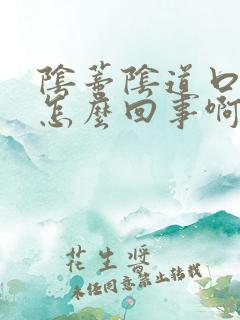 陰蒂陰道口
怎麼回事啊
花生醬
未经同意禁止转载